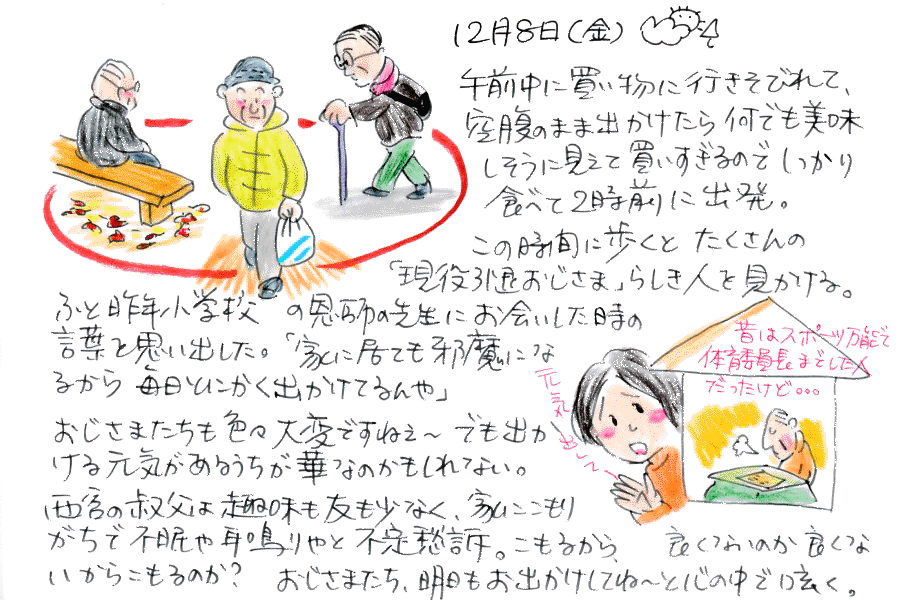 12月8日(金)
午前中に買い物に行きそびれて、
空腹のまま出かけたら何でも美味
しそうに見えて買いすぎるのでしっかり
食べて2時前に出発。
この時間に歩くと たくさんの
「現役引退おじさま」らしき人を見かける。
ふと昨年小学校 の恩師の先生にお会いした時の
言葉を思い出した。「家に居ても邪魔にな
るから 毎日とにかく出かけてるんや」
おじさまたちも色々大変ですねぇ〜 でも出か
ける元気があるうちが華なのかもしれない。
西宮の叔父は趣味も友も少なく、家にこもり
がちで不眠や耳鳴りやと不定愁訴。こもるから、 良くないのか良くな
いからこもるのか? おじさまたち、明日もお出かけしてね〜と心の中で呟く。
昔はスポーツ万能で
体育委員長までした人
だったけど…
元気
出し〜